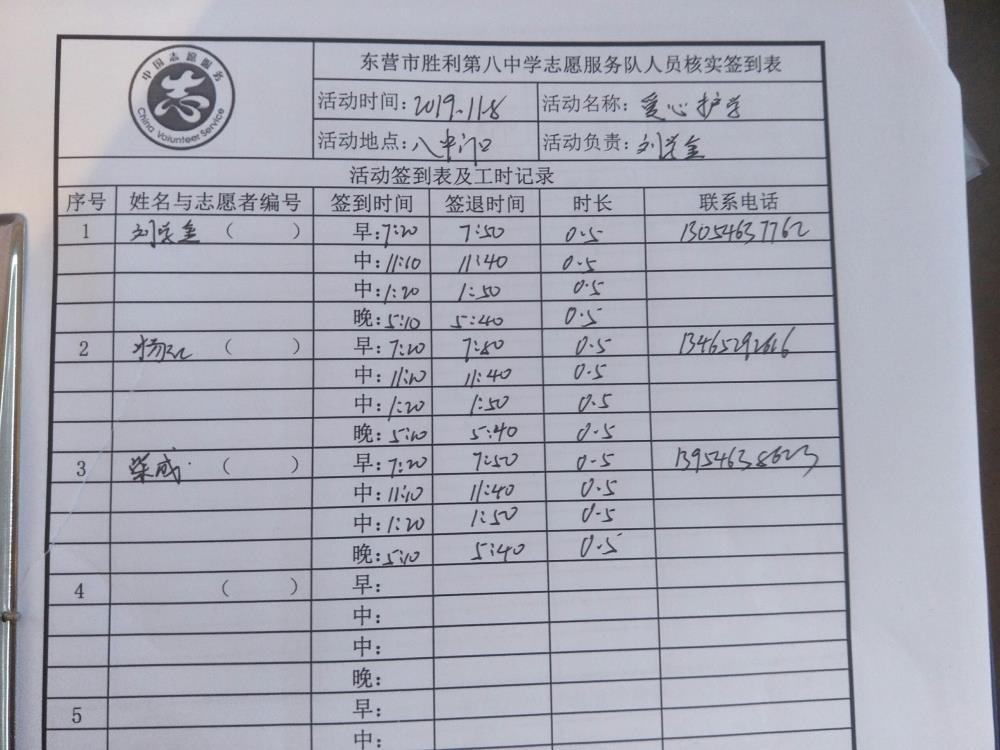 中国志愿服务
志
China Volunteer Service
东营市胜利第八中学志愿服务队人员核实签到表
活动时间：2019.11.8 活动名称：爱心护学
活动地点：八中门口 活动负责：刘学金
活动签到表及工时记录
序号 姓名与志愿者编号 签到时间 签退时间 时长 联系电话
1 刘学金 （ ） 早：7:20 7:50 0.5 13054637762
中：11:10 11:40 0.5
中：1:20 1:50 0.5
晚：5:10 5:40 0.5
2 杨 （ ） 早：7:20 7:50 0.5 13465292616
中：11:10 11:40 0.5
中：1:20 1:50 0.5
晚：5:10 5:40 0.5
3 荣成 （ ） 早：7:20 7:50 0.5 13954638623
中：11:10 11:40 0.5
中：1:20 1:50 0.5
晚：5:10 5:40 0.5
4 （ ） 早：
中：
中：
晚：
5 早：
中：